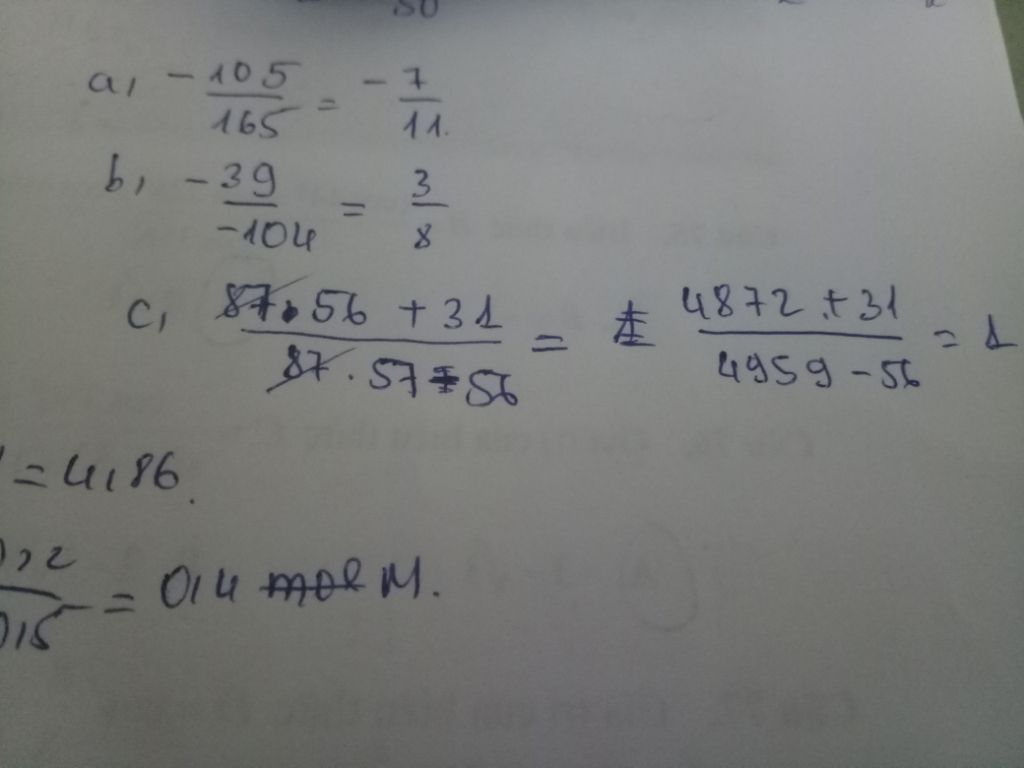 50
a, - 105/165 = - 7/11.
b, -39/-104 = 3/8
c, 87.56 + 31 / 87.57 - 56 = 4872 + 31 / 4959 - 56 = 1
= 4,86.
= 0,4 mol M.